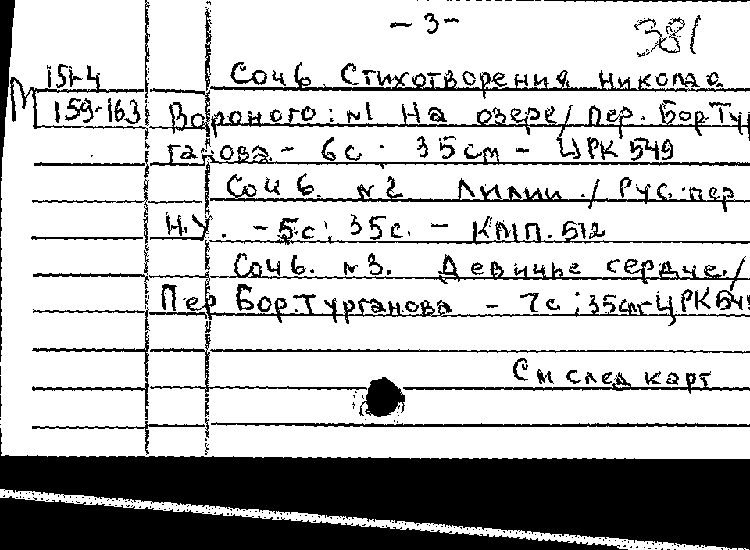 - 3 -
381
151-4
Соч 6. Стихотворения Николае
М 159-163 Вороного: №1 На озере/ пер. Бор.Тур
ганова - 6с; 35см - ЦРК 549
Соч 6. №2 Лилии ./ Рус. пер
Н.У. - 5с; 35с. - КМП. 512
Соч 6. №3. Девичье сердце./
Пер Бор.Турганова - 7с; 35см-ЦРК 549
См след карт